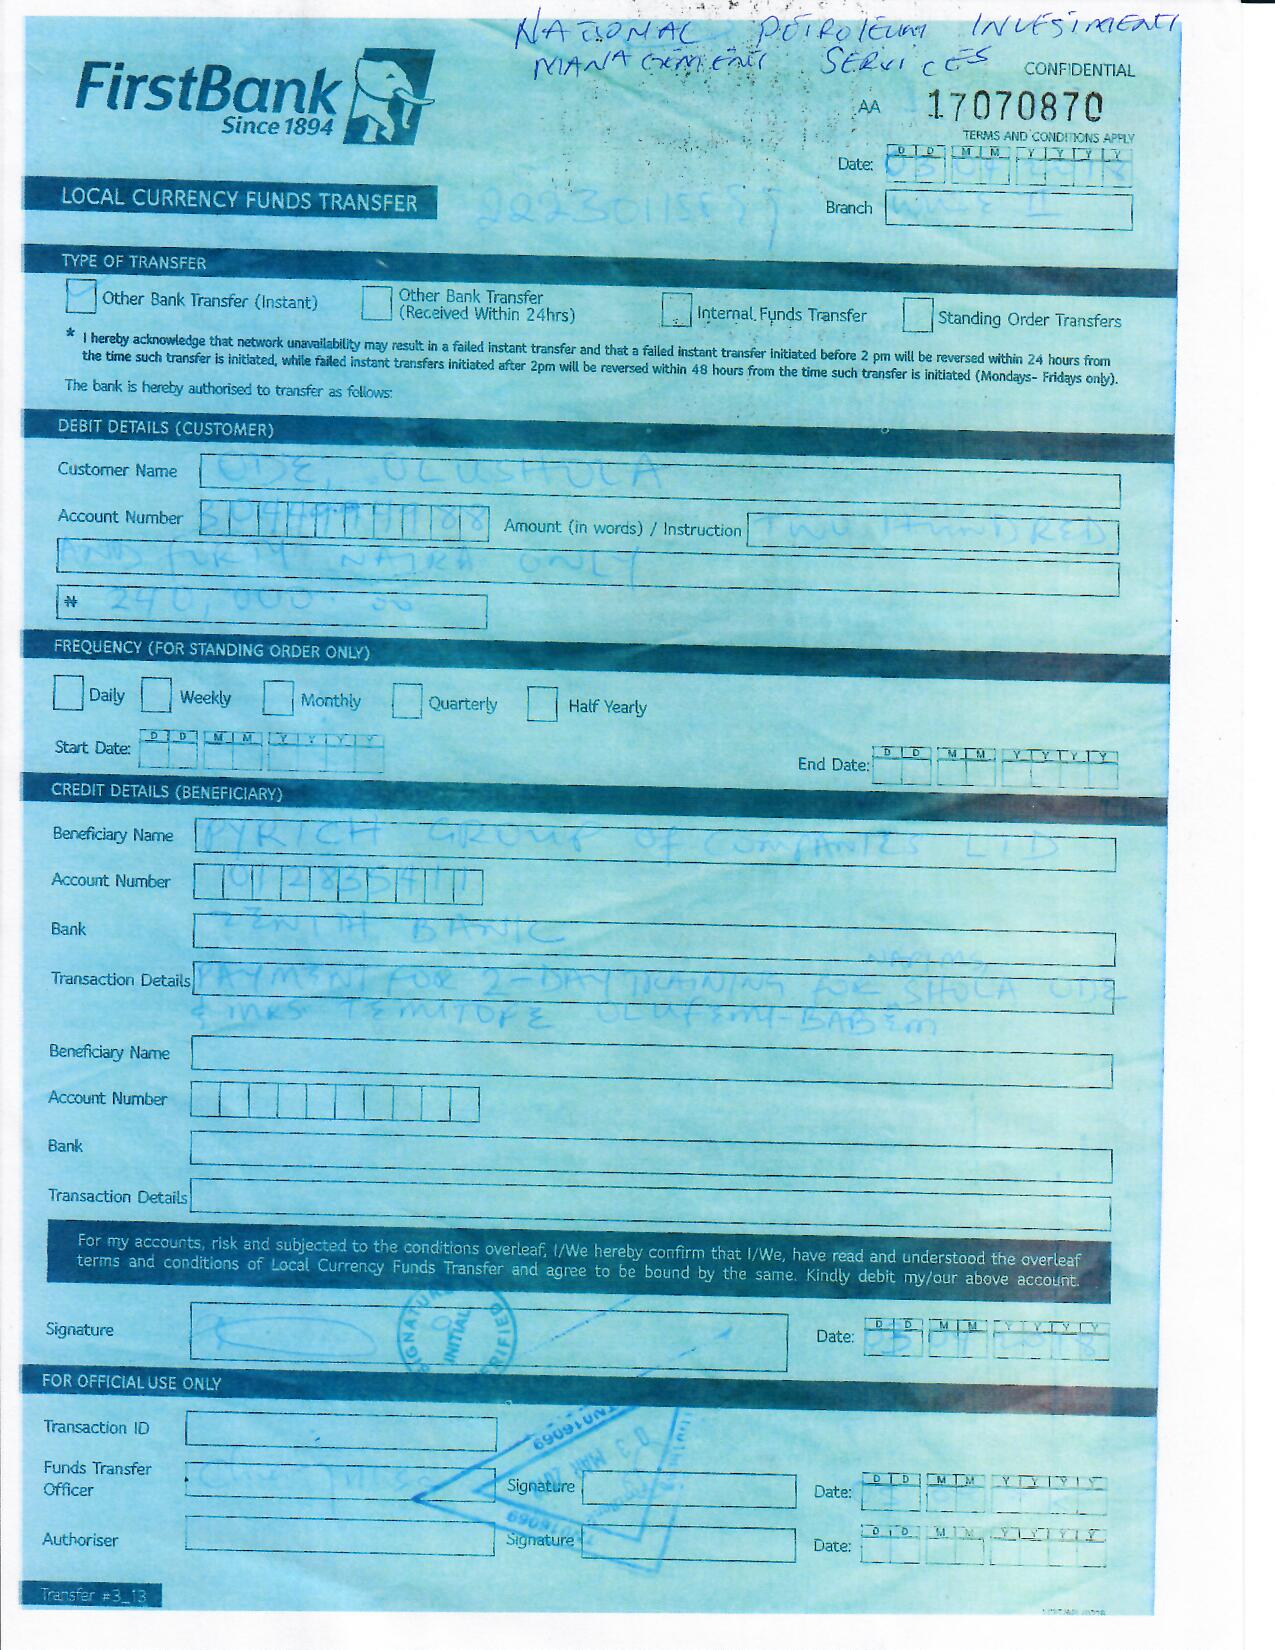 NATIONAL PETROLEUM INVESTMENT
MANAGEMENT SERVICES
FirstBank
Since 1894
CONFIDENTIAL
AA 17070870
TERMS AND CONDITIONS APPLY
Date: D D M M Y Y Y Y
LOCAL CURRENCY FUNDS TRANSFER
Branch
TYPE OF TRANSFER
Other Bank Transfer (Instant)
Other Bank Transfer
(Received Within 24hrs)
Internal Funds Transfer
Standing Order Transfers
* I hereby acknowledge that network unavailability may result in a failed instant transfer and that a failed instant transfer initiated before 2 pm will be reversed within 24 hours from
the time such transfer is initiated, while failed instant transfers initiated after 2pm will be reversed within 48 hours from the time such transfer is initiated (Mondays- Fridays only).
The bank is hereby authorised to transfer as follows:
DEBIT DETAILS (CUSTOMER)
Customer Name ODE, OLUSHOLA
Account Number
Amount (in words) / Instruction TWO HUNDRED
AND FORTY NAIRA ONLY
₦ 240,000 00
FREQUENCY (FOR STANDING ORDER ONLY)
Daily Weekly Monthly Quarterly Half Yearly
Start Date: D D M M Y Y Y Y
End Date: D D M M Y Y Y Y
CREDIT DETAILS (BENEFICIARY)
Beneficiary Name PYRICH GROUP OF COMPANIES LTD
Account Number 0128355411
Bank ZENITH BANK
Transaction Details PAYMENT FOR 2-DAY TRAINING FOR SHOLA ODE
& MRS TEMITOPE OLUFEMI-BABEM
Beneficiary Name
Account Number
Bank
Transaction Details
For my accounts, risk and subjected to the conditions overleaf, I/We hereby confirm that I/We, have read and understood the overleaf
terms and conditions of Local Currency Funds Transfer and agree to be bound by the same. Kindly debit my/our above account.
Signature
INITIAL
Date: D D M M Y Y Y Y
FOR OFFICIAL USE ONLY
Transaction ID
Funds Transfer
Officer
Signature
Date: D D M M Y Y Y Y
Authoriser
Signature
Date: D D M M Y Y Y Y
Transfer #3_13